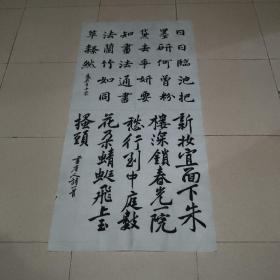 日日臨池把
墨研何曾粉
黛去爭妍要
知畫法通書
法蘭竹如同
草隸然
新妝宜面下朱
樓深鎖春光一院
愁行到中庭數
花朵蜻蜓飛上玉
搔頭
書唐人詩